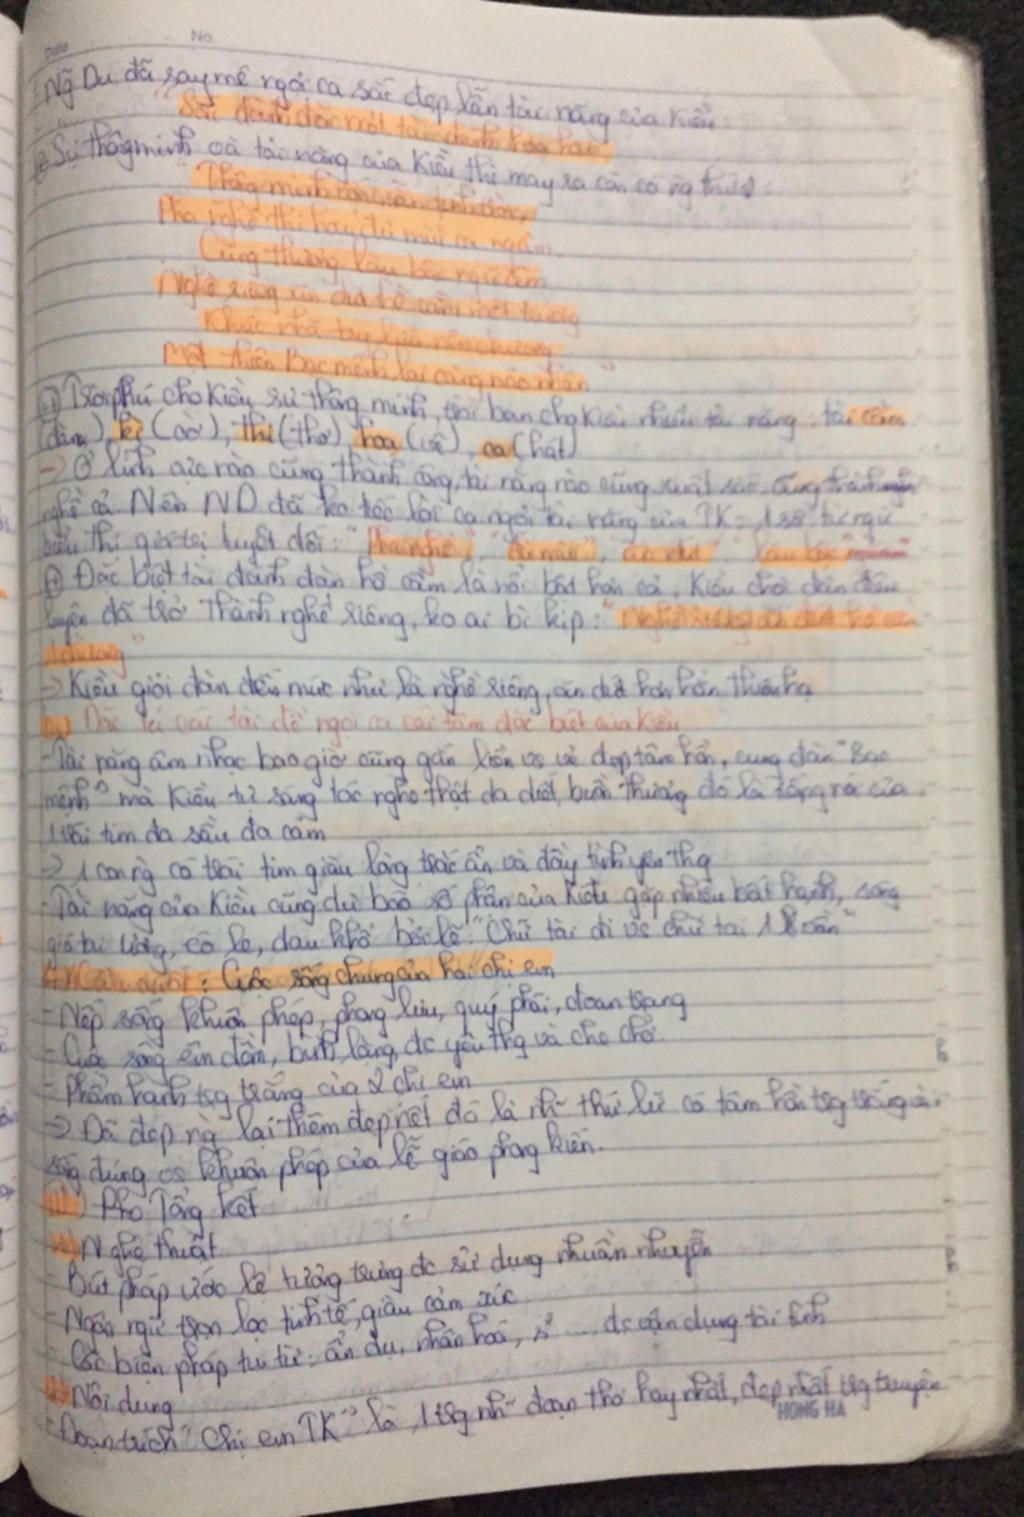 Date No.
Ng Du đã say mê ngợi ca sắc đẹp lẫn tài năng của Kiều:
"Sắc đành đòi một tài đành họa hai"
Sự thông minh và tài năng của Kiều thì may ra còn có ng thứ 2:
"Thông minh vốn sẵn tính trời,
Pha nghề thi họa đủ mùi ca ngâm.
Cung thương lầu bậc ngũ âm
Nghề riêng ăn đứt hồ cầm một trương
Khúc nhà tay lựa nên chương
Một thiên Bạc mệnh lại càng não nhân"
Trời phú cho Kiều sự thông minh, trời ban cho Kiều nhiều tài năng: tài cầm
(đàn), kì (cờ), thi (thơ) họa (vẽ), ca (hát)
-> Ở lĩnh vực nào cũng thành công, tài năng nào cũng xuất sắc cũng thành
nghề cả. Nên ND đã ko tiếc lời ca ngợi tài năng của TK = 1 số từ ngữ
biểu thị giá trị tuyệt đối: "pha nghề", "đủ mùi", "ăn đứt" "lầu bậc"
Đặc biệt tài đánh đàn hồ cầm là nổi bật hơn cả, Kiều chơi đàn điêu
luyện đã trở thành nghề riêng, ko ai bì kịp: "Nghề riêng ăn đứt hồ cầm
1 trương"
-> Kiều giỏi đàn đến mức như là nghề riêng, ăn đứt hơn hẳn thiên hạ
Đặc tả cái tài để ngợi ca cái tâm đặc biệt của Kiều
- Tài năng âm nhạc bao giờ cũng gắn liền vs vẻ đẹp tâm hồn, cung đàn "Bạc
mệnh" mà Kiều tự sáng tác nghe thật da diết, buồn thương đó là tiếng nói của
1 trái tim đa sầu đa cảm
-> 1 con ng có trái tim giàu lòng trắc ẩn và đầy tình yêu thg
- Tài năng của Kiều cũng dự báo số phận của Kiều gặp nhiều bất hạnh, sóng
gió tai ương, éo le, đau khổ bởi lẽ "Chữ tài đi vs chữ tai 1 vần"
4. 4 câu cuối: Cuộc sống chung của hai chị em
- Nếp sống khuôn phép, phong lưu, quý phái, đoan trang
- Cuộc sống êm đềm, bình lặng, đc yêu thg và che chở
- Phẩm hạnh trg trắng của 2 chị em
-> Đã đẹp ng lại thêm đẹp nết đó là nh~ thứ lữ có tâm hồn trg trắng và
sống đúng vs khuôn phép của lễ giáo phong kiến.
III) Phô Tổng kết
1) Nghệ thuật
- Bút pháp ước lệ tượng trưng đc sử dụng nhuần nhuyễn
- Ngôn ngữ trọn lọc tinh tế, giàu cảm xúc
- Các biện pháp tu từ: ẩn dụ, nhân hoá, s² .... đc vận dụng tài tình
2) Nội dung
- Đoạn trích "Chị em TK" là 1 trg nh~ đoạn thơ hay nhất, đẹp nhất trg truyện
HONG HA